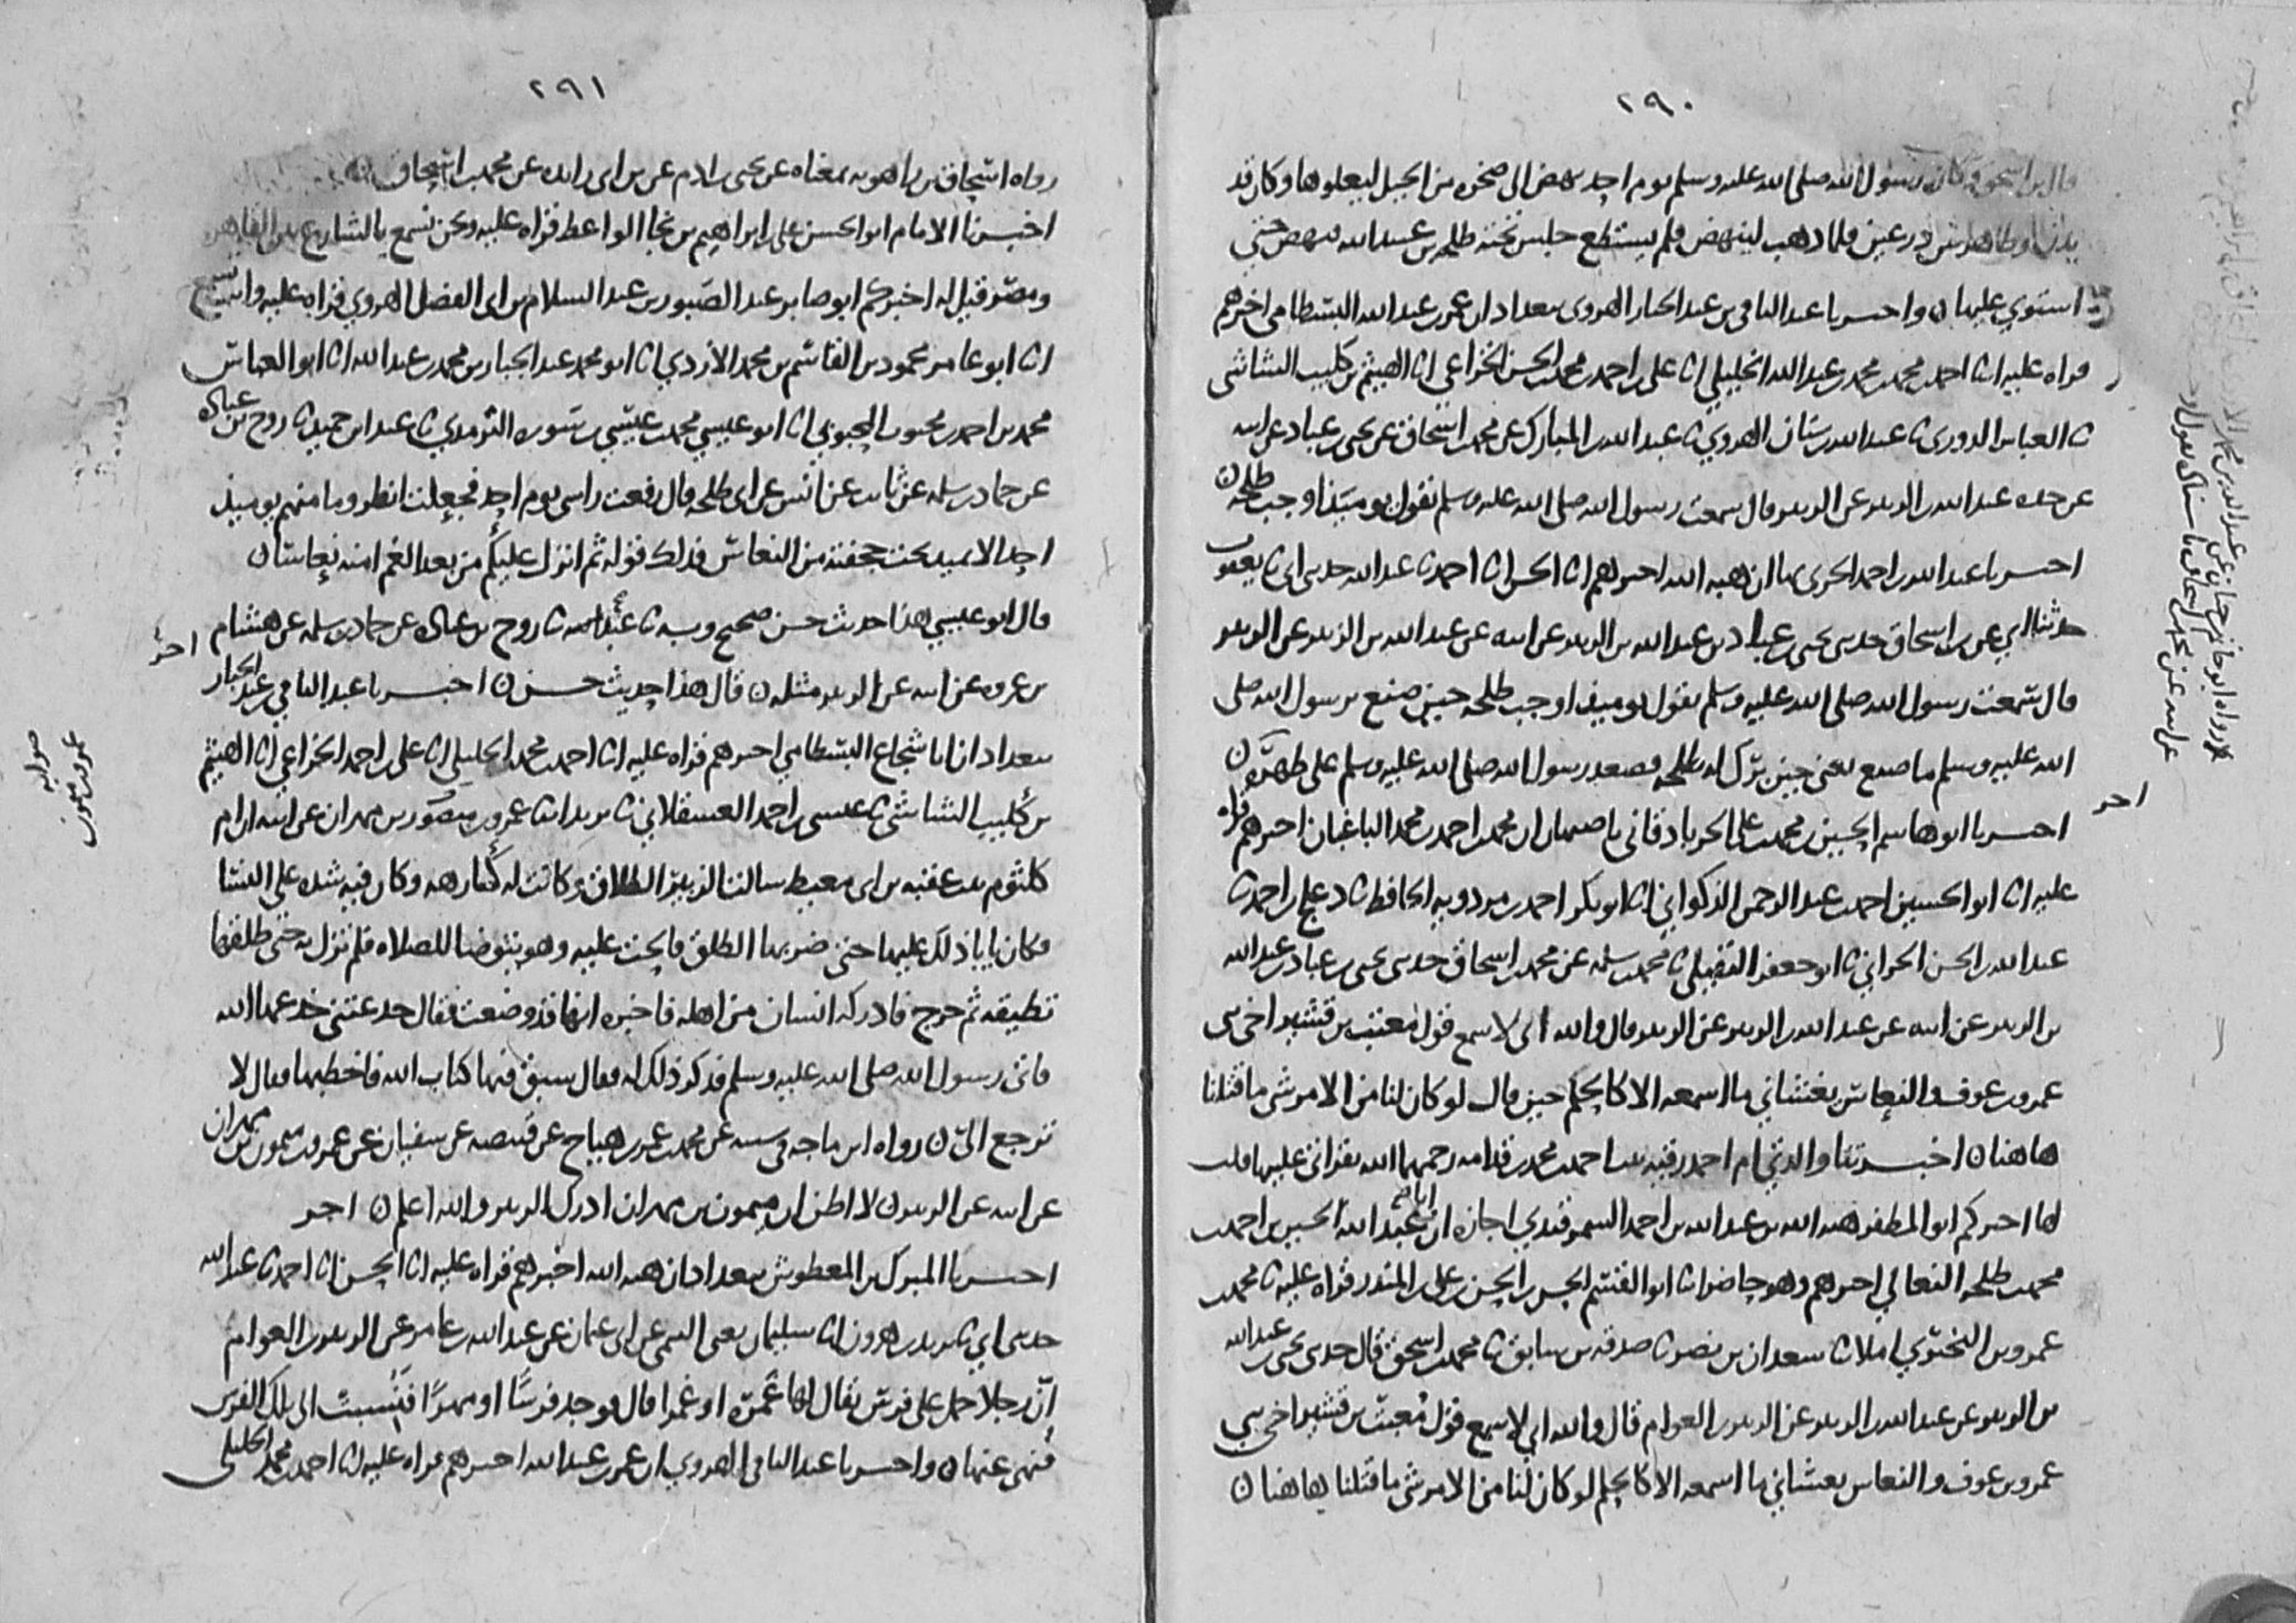 ٢٩٠
قال ابن اسحق وكان رسول الله صلى الله عليه وسلم يوم احد نهض الى صخره من الجبل ليعلوها وكان قد
بدن وظاهر بين درعين فلما ذهب لينهض فلم يستطع جلس تحته طلحه بن عبيد الله فنهض حتي
استوي عليها ن واخبرنا عبد الباقي بن عبد الجبار الهروى ببغداد ان عمر بن عبد الله البسطامي اخبرهم
قراه عليه انا احمد بن محمد بن محمد بن عبد الله الخليلي انا على بن احمد بن محمد بن الحسن الخزاعي انا الهيثم بن كليب الشاشى
ثا العباس الدورى ثا عبد الله بن سنان الهروي ثا عبد الله بن المبارك عن محمد بن اسحاق عن يحيى بن عباد عن ابيه
عن جده عبد الله بن الزبير عن الزبير قال سمعت رسول الله صلى الله عليه وسلم يقول يوميذ اوجب طلحه ن
اخبرنا عبد الله بن احمد الحربى بها ان هبه الله اخبرهم انا الحسن انا احمد ثا عبد الله حدثنى ابى ثا يعقوب
حدثنا ابي عن بن اسحاق حدثنى يحيى بن عباد بن عبد الله بن الزبير عن ابيه عن عبد الله بن الزبير عن الزبير
قال سمعت رسول الله صلى الله عليه وسلم يقول يوميذ اوجب طلحه حين صنع برسول الله صلى
الله عليه وسلم ما صنع يعنى حين برك له طلحه فصعد رسول الله صلى الله عليه وسلم على ظهره ن
اخبرنا ابو هاشم الحسين بن محمد بن على الجرباذقانى باصبهان ان محمد بن احمد بن محمد الباغبان اخبرهم قراه
عليه انا ابو الحسين احمد بن عبد الرحمن الذكواني انا ابو بكر احمد بن مردويه الحافظ ثا دعلج بن احمد ثا
عبد الله بن الحسن الحراني ثا ابو جعفر النفيلي ثا محمد بن سلمه عن محمد بن اسحاق حدثنى يحيى بن عباد بن عبد الله
بن الزبير عن ابيه عن عبد الله بن الزبير عن الزبير قال والله انى لاسمع قول معتب بن قشير اخى بنى
عمرو بن عوف والنعاس يغشاني ما اسمعه الا كالحلم حين قال لو كان لنا من الامر شى ما قتلنا
هاهنا ن اخبرتنا والدتي ام احمد رقيه بنت احمد بن محمد بن قدامه رحمهما الله بقراتى عليها قلت
لها اخبركم ابو المظفر هبه الله بن عبد الله بن احمد السمرقندي اجازه ان ابا عبد الله الحسين بن احمد بن
محمد بن طلحه النعالي اخبرهم وهو حاضر انا ابو القسم الحسن بن الحسن بن على بن المنذر قراه عليه ثا محمد بن
عمرو بن البختري املا ثا سعدان بن نصر ثا صدقه بن سابق ثا محمد بن اسحق قال حدثنى يحيى بن عبد الله
بن الزبير عن عبد الله بن الزبير عن الزبير بن العوام قال والله اني لاسمع قول معتب بن قشير اخى بني
عمرو بن عوف والنعاس يغشاني ما اسمعه الا كالحلم لو كان لنا من الامر شى ما قتلنا هاهنا ن
اخر
٢٩١
رواه اسحاق بن راهويه بمعناه عن يحيى بن ادم عن بن ابى زايده عن محمد بن اسحاق ن
اخبرنا الامام ابو الحسن على بن ابراهيم بن نجا الواعظ قراه عليه ونحن نسمع بالشارع بين القاهره
ومصر قيل له اخبركم ابو صابر عبد الصبور بن عبد السلام بن ابى الفضل الهروي قراه عليه وانت تسمع
انا ابو عامر محمود بن القاسم بن محمد الازدي انا ابو محمد عبد الجبار بن محمد بن عبد الله انا ابو العباس
محمد بن احمد بن محبوب المحبوبي انا ابو عيسي محمد بن عيسي بن سوره الترمدي ثا عبد ابن حميد ثا روح بن عباده
عن حماد بن سلمه عن ثابت عن انس عن ابى طلحه قال رفعت راسى يوم احد فجعلت انظر وما منهم يوميذ
احد الا يميد تحت حجفته من النعاس فذلك قوله ثم انزل عليكم من بعد الغم امنه نعاسا ن
قال ابو عيسي هذا حديث حسن صحيح وبه ثا عبد ثا روح بن عباده عن حماد بن سلمه عن هشام
بن عروه عن ابيه عن الزبير مثله ن قال هذا حديث حسن ن اخبرنا عبد الباقي بن عبد الجبار
ببغداد ان ابا شجاع البسطامي اخبرهم قراه عليه انا احمد بن محمد الخليلي انا على بن احمد الخزاعي انا الهيثم
بن كليب الشاشى ثا عيسى بن احمد العسقلاني ثا يزيد انا عمرو بن ميمون بن مهران عن ابيه ان ام
كلثوم بنت عقبه بن ابى معيط سالت الزبير الطلاق وكانت له كارهه وكان فيه شده على النسا
فكان يابا ذلك عليها حتى ضربها الطلق فالحت عليه وهو يتوضا للصلاه فلم تزل به حتى طلقها
تطليقه ثم خرج فادركه انسان من اهله فاخبره انها قد وضعت فقال خدعتني خدعها الله
فاتى رسول الله صلى الله عليه وسلم فذكر ذلك له فقال سبق فيها كتاب الله فاخطبها فقال لا
ترجع الي ن رواه ابن ماجه فى سننه عن محمد بن عمر بن هياج عن قبيصه عن سفيان عن عمرو بن ميمون بن مهران
عن ابيه عن الزبير ن لا اظن ان ميمون بن مهران ادرك الزبير والله اعلم ن اخر
اخبرنا المبرك بن المعطوش ببغداد ان هبه الله اخبرهم قراه عليه انا الحسن انا احمد ثا عبد الله
حدثنى ابي ثا يزيد بن هرون انا سليمان يعنى التيمى عن ابى عثمان عن عبد الله بن عامر عن الزبير بن العوام
ان رجلا حمل على فرس يقال لها غمره او غمرا قال فوجد فرسا او مهرا فنسبت الى تلك الفرس
فنهى عنها ن واخبرنا عبد الباقى الهروي ان عمر بن عبد الله اخبرهم قراه عليه انا احمد بن محمد الخليلى
اخر
صوابه
عمرو بن ميمون